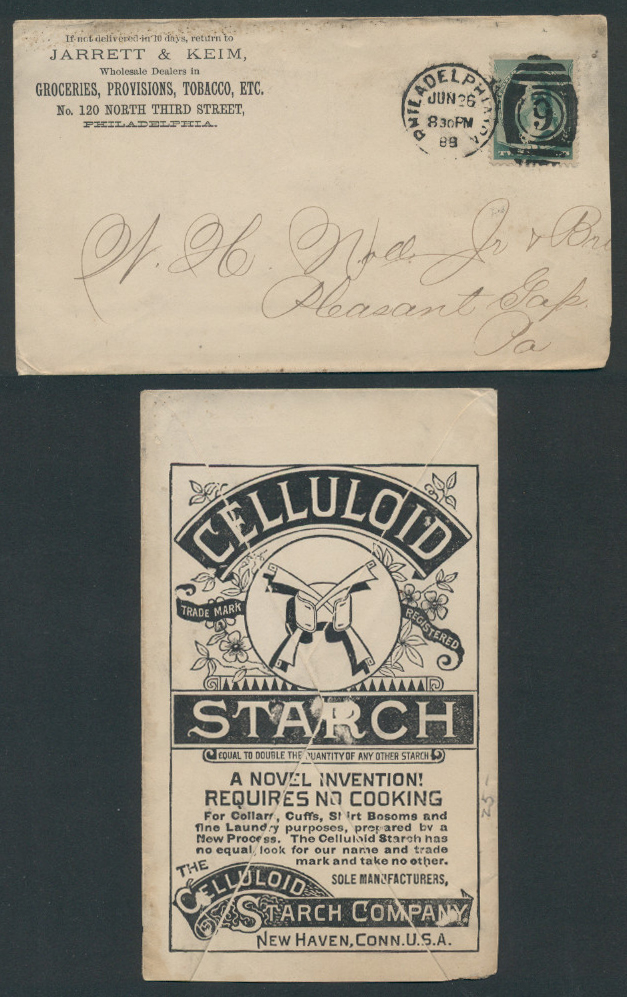 If not delivered in 10 days, return to
JARRETT & KEIM,
Wholesale Dealers in
GROCERIES, PROVISIONS, TOBACCO, ETC.
No. 120 NORTH THIRD STREET,
PHILADELPHIA.
PHILADELPHIA
JUN 26
830PM
88
9
W. H. Noll Jr & Bro
Pleasant Gap
Pa
CELLULOID
TRADE MARK
REGISTERED
STARCH
EQUAL TO DOUBLE THE QUANTITY OF ANY OTHER STARCH
A NOVEL INVENTION!
REQUIRES NO COOKING
For Collars, Cuffs, Shirt Bosoms and
fine Laundry purposes, prepared by a
New Process. The Celluloid Starch has
no equal, look for our name and trade
mark and take no other.
SOLE MANUFACTURERS,
THE
CELLULOID
STARCH COMPANY,
NEW HAVEN, CONN. U.S.A.
25-